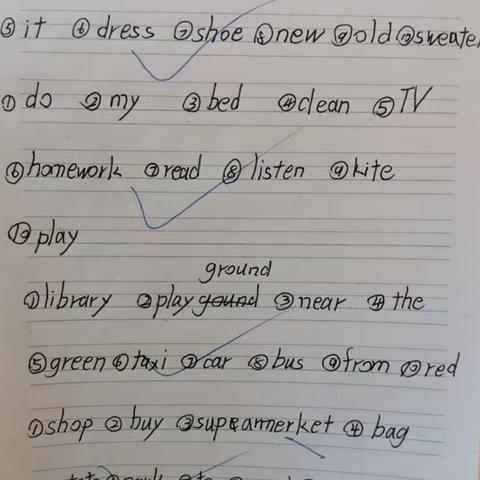 ⑤it ⑥dress ⑦shoe ⑧new ⑨old ⑩sweater
①do ②my ③bed ④clean ⑤TV
⑥homework ⑦read ⑧listen ⑨kite
⑩play
ground
①library ②play gound ③near ④the
⑤green ⑥taxi ⑦car ⑧bus ⑨from ⑩red
①shop ②buy ③supeamerket ④bag